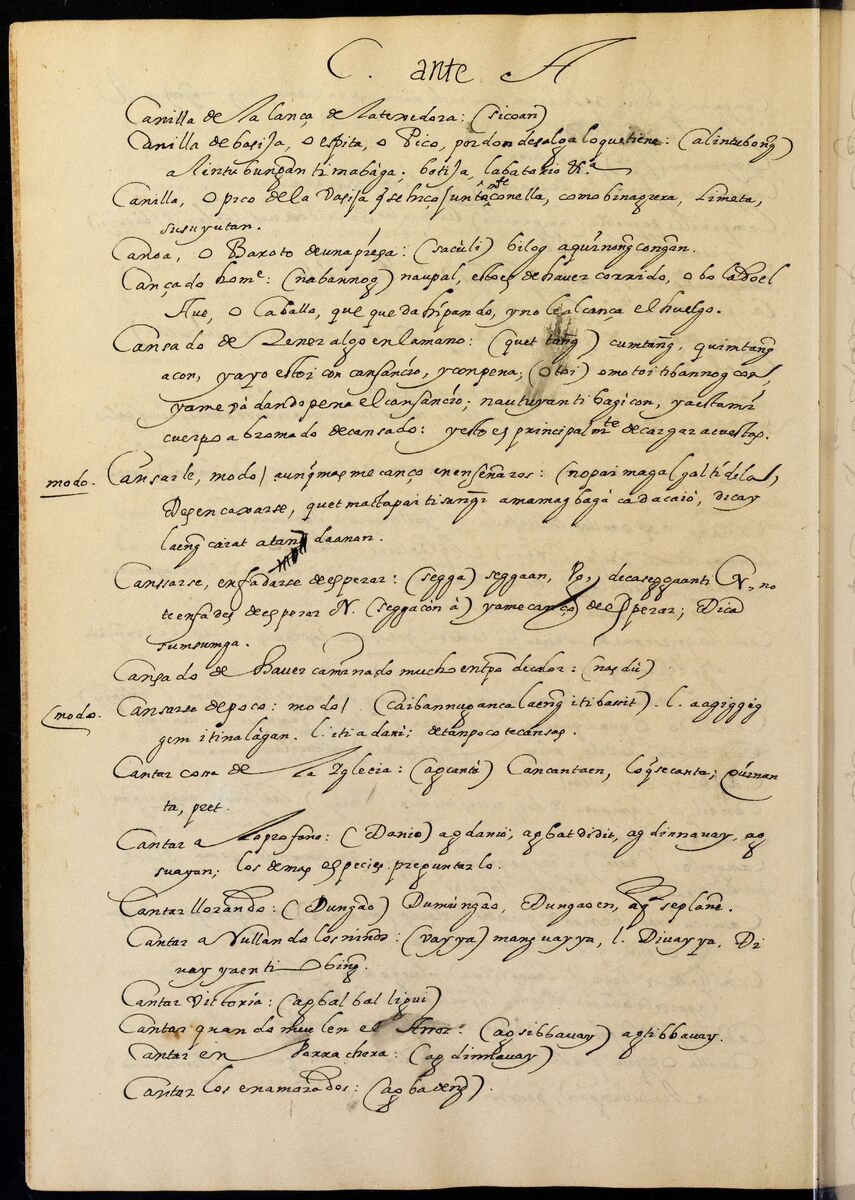 C. ante A
Canilla de la lança de la texedora: (sicoan)
Canilla de basija, o espita, o Pico, por donde salga lo que tiene: (alintubong)
alintubungan ti mabaga; botija, labatorio &.a
Canilla, o pico de la vasija q̃ se hiço junta mte con ella, como binagrera, limeta,
susuyutan.
Canoa, o Baroto de una pieça: (saculi) bilog a quinongcongan.
Cançado home: (nabannog) naupal, esto es de haver corrido, o bolado el
Ave, o Caballo, que queda hipando, y no le alcança el huelgo.
Cansado de tener algo en la mano: (quet tang) cumtang, quimtang
acon, ya yo estoi con cansancio, y con pena; (otoi) omotoi ti bannog co,
ya me va dando pena el cansancio; nautuyan ti bagicon, ya esta mi
cuerpo abromado de cansado: y esto es principalmte de cargar acuestas.
modo. Cansarse, modo/ aunq̃ mas me canço en enseñaros:
Desencaxarse, quet mattapai ti sungi a mamagbaga cadacaió, dicay
laeng carat a daanan.
Canssarse, enfadarse de esperar: (segga) seggaan, Po, decaseggaanti N, no
te enfades de esperar N. (seggacon a) ya me canço de esperar; Dica
sumsumga.
Cansado de haver caminado mucho en tpo de calor: (nasdu)
modo. Cansarse de poco: modo/ (caibannuganca laeng iti bassit). l. aagiggig
gem iti nalagan. l. iti adani; de tan poco te cansas.
Cantar cosa de la Iglecia: (agcanta) Cancantaen, lo q̃ se canta; quinan
ta, pret.
Cantar a lo profano: (Danio) agdanio; agbatdidit, agdinnavay, ag
suayan; los demas especies preguntarlo.
Cantar llorando: (Dungao) Dumungao, Dungaoen, aq̃l se plane.
Cantar aRullando los niños: (vayya) mangvayya, l. Divayya, Di
vayyaen ti Obing.
Cantar Victoria: (agbalballigui)
Cantar quando muelen el Arroz: (agsibbavay) agsibbavay.
Cantar en Borrachera: (agdinnavay)
Cantar los enamorados: (agbadeng).